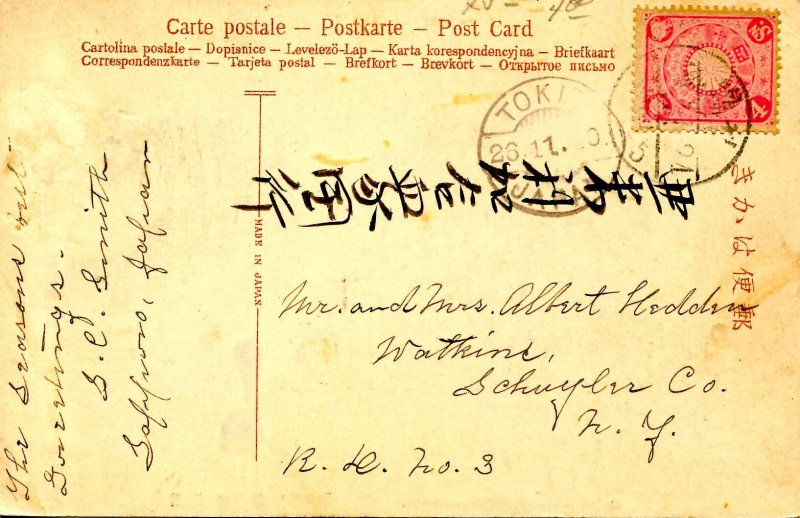 Carte postale – Postkarte – Post Card
Cartolina postale – Dopisnice – Levelező-Lap – Karta korespondencyjna – Briefkaart
Correspondenzkarte – Tarjeta postal – Brefkort – Brevkort – Открытое письмо
TOKI
26.11.
JAPA
4
Sn
きかは便郵
MADE IN JAPAN
Mr. and Mrs. Albert Hedden
Watkins,
Schuyler Co.
N. Y.
R. D. No. 3
The Seasons
Greetings.
S. C. Smith
Sapporo, Japan